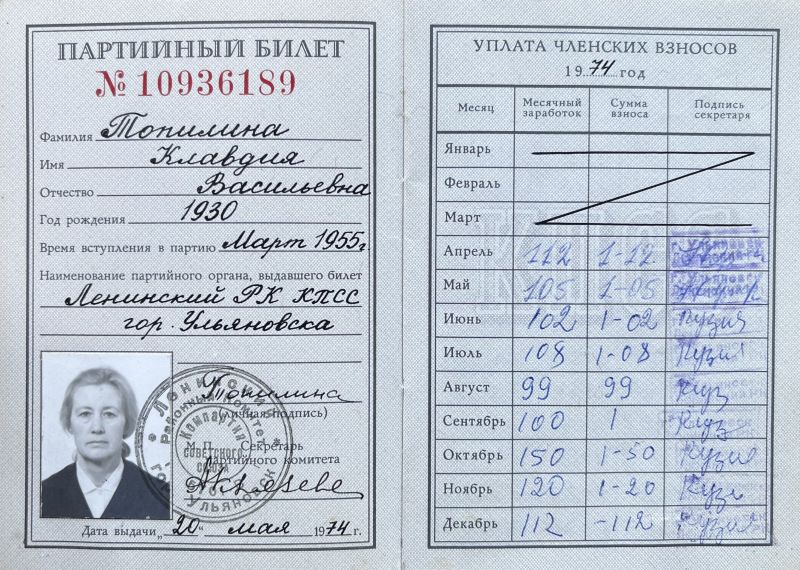 ПАРТИЙНЫЙ БИЛЕТ
№ 10936189
Фамилия Топилина
Имя Клавдия
Отчество Васильевна
Год рождения 1930
Время вступления в партию Март 1955г.
Наименование партийного органа, выдавшего билет
Ленинский РК КПСС
гор. Ульяновска
Топилина
(личная подпись)
М. П. Секретарь
партийного комитета
Ленинский
Районный Комитет
Компартия
Советского
Союза
г. Ульяновск
Дата выдачи „20" мая 1974 г.
УПЛАТА ЧЛЕНСКИХ ВЗНОСОВ
1974 год
Месяц Месячный заработок Сумма взноса Подпись секретаря
Январь
Февраль
Март
Апрель 112 1-12
Май 105 1-05
Июнь 102 1-02
Июль 108 1-08
Август 99 99
Сентябрь 100 1
Октябрь 150 1-50
Ноябрь 120 1-20
Декабрь 112 -112